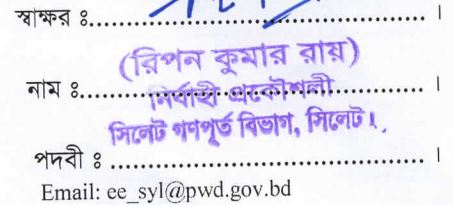 স্বাক্ষর ঃ................................................ ।
(রিপন কুমার রায়)
নাম ঃ................................................ ।
নির্বাহী প্রকৌশলী
সিলেট গণপূর্ত বিভাগ, সিলেট।
পদবী ঃ ................................................ ।
Email: ee_syl@pwd.gov.bd